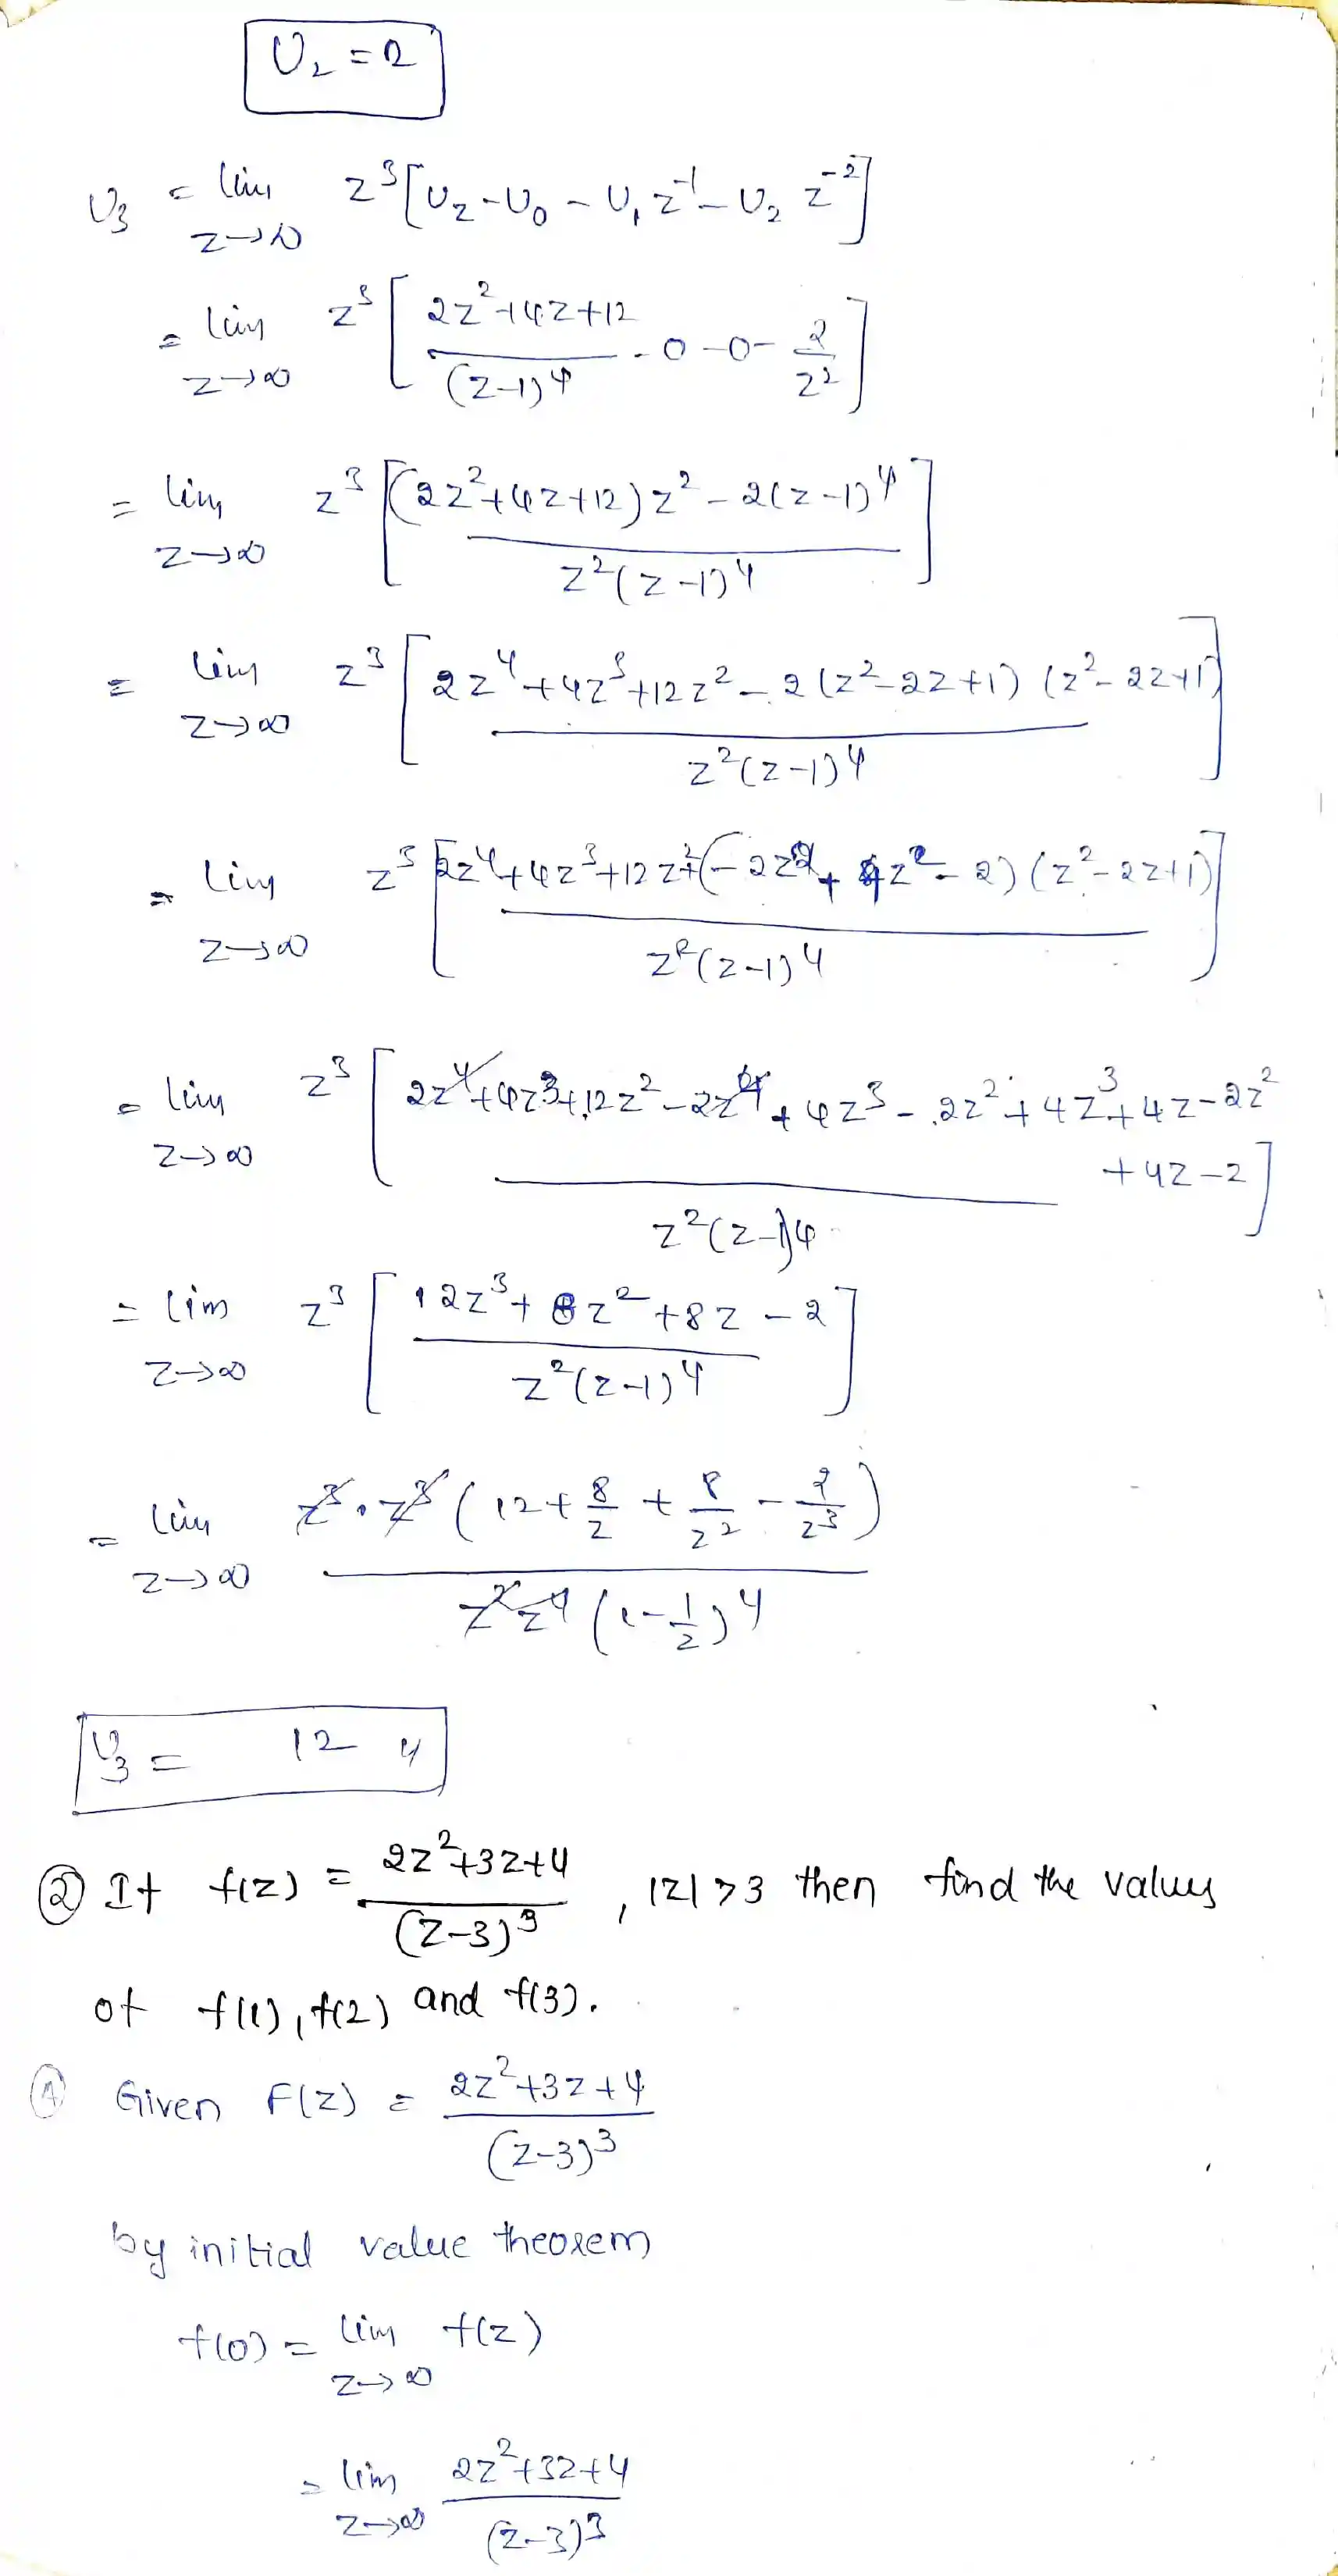 U₂ = 2
U₃ = lim z→∞ z³[U_z - U₀ - U₁ z⁻¹ - U₂ z⁻²]
= lim z→∞ z³ [ (2z²+4z+12)/(z-1)⁴ - 0 - 0 - 2/z² ]
= lim z→∞ z³ [ ((2z²+4z+12)z² - 2(z-1)⁴) / (z²(z-1)⁴) ]
= lim z→∞ z³ [ (2z⁴+4z³+12z² - 2(z²-2z+1)(z²-2z+1)) / (z²(z-1)⁴) ]
= lim z→∞ z³ [ (2z⁴+4z³+12z²+(-2z²+4z²-2)(z²-2z+1)) / (z²(z-1)⁴) ]
= lim z→∞ z³ [ (2z⁴+4z³+12z²-2z⁴+4z³-2z²+4z³+4z-2z²
+4z-2) / (z²(z-1)⁴) ]
= lim z→∞ z³ [ (12z³+8z²+8z-2) / (z²(z-1)⁴) ]
= lim z→∞ z³·z³(12+8/z+8/z²-2/z³) / (z²z⁴(1-1/z)⁴)
U₃ = 12
② If f(z) = (2z²+3z+4)/(z-3)³, |z|>3 then find the values
of f(1), f(2) and f(3).
Ⓐ Given F(z) = (2z²+3z+4)/(z-3)³
by initial value theorem
f(0) = lim z→∞ f(z)
= lim z→∞ (2z²+3z+4)/(z-3)³